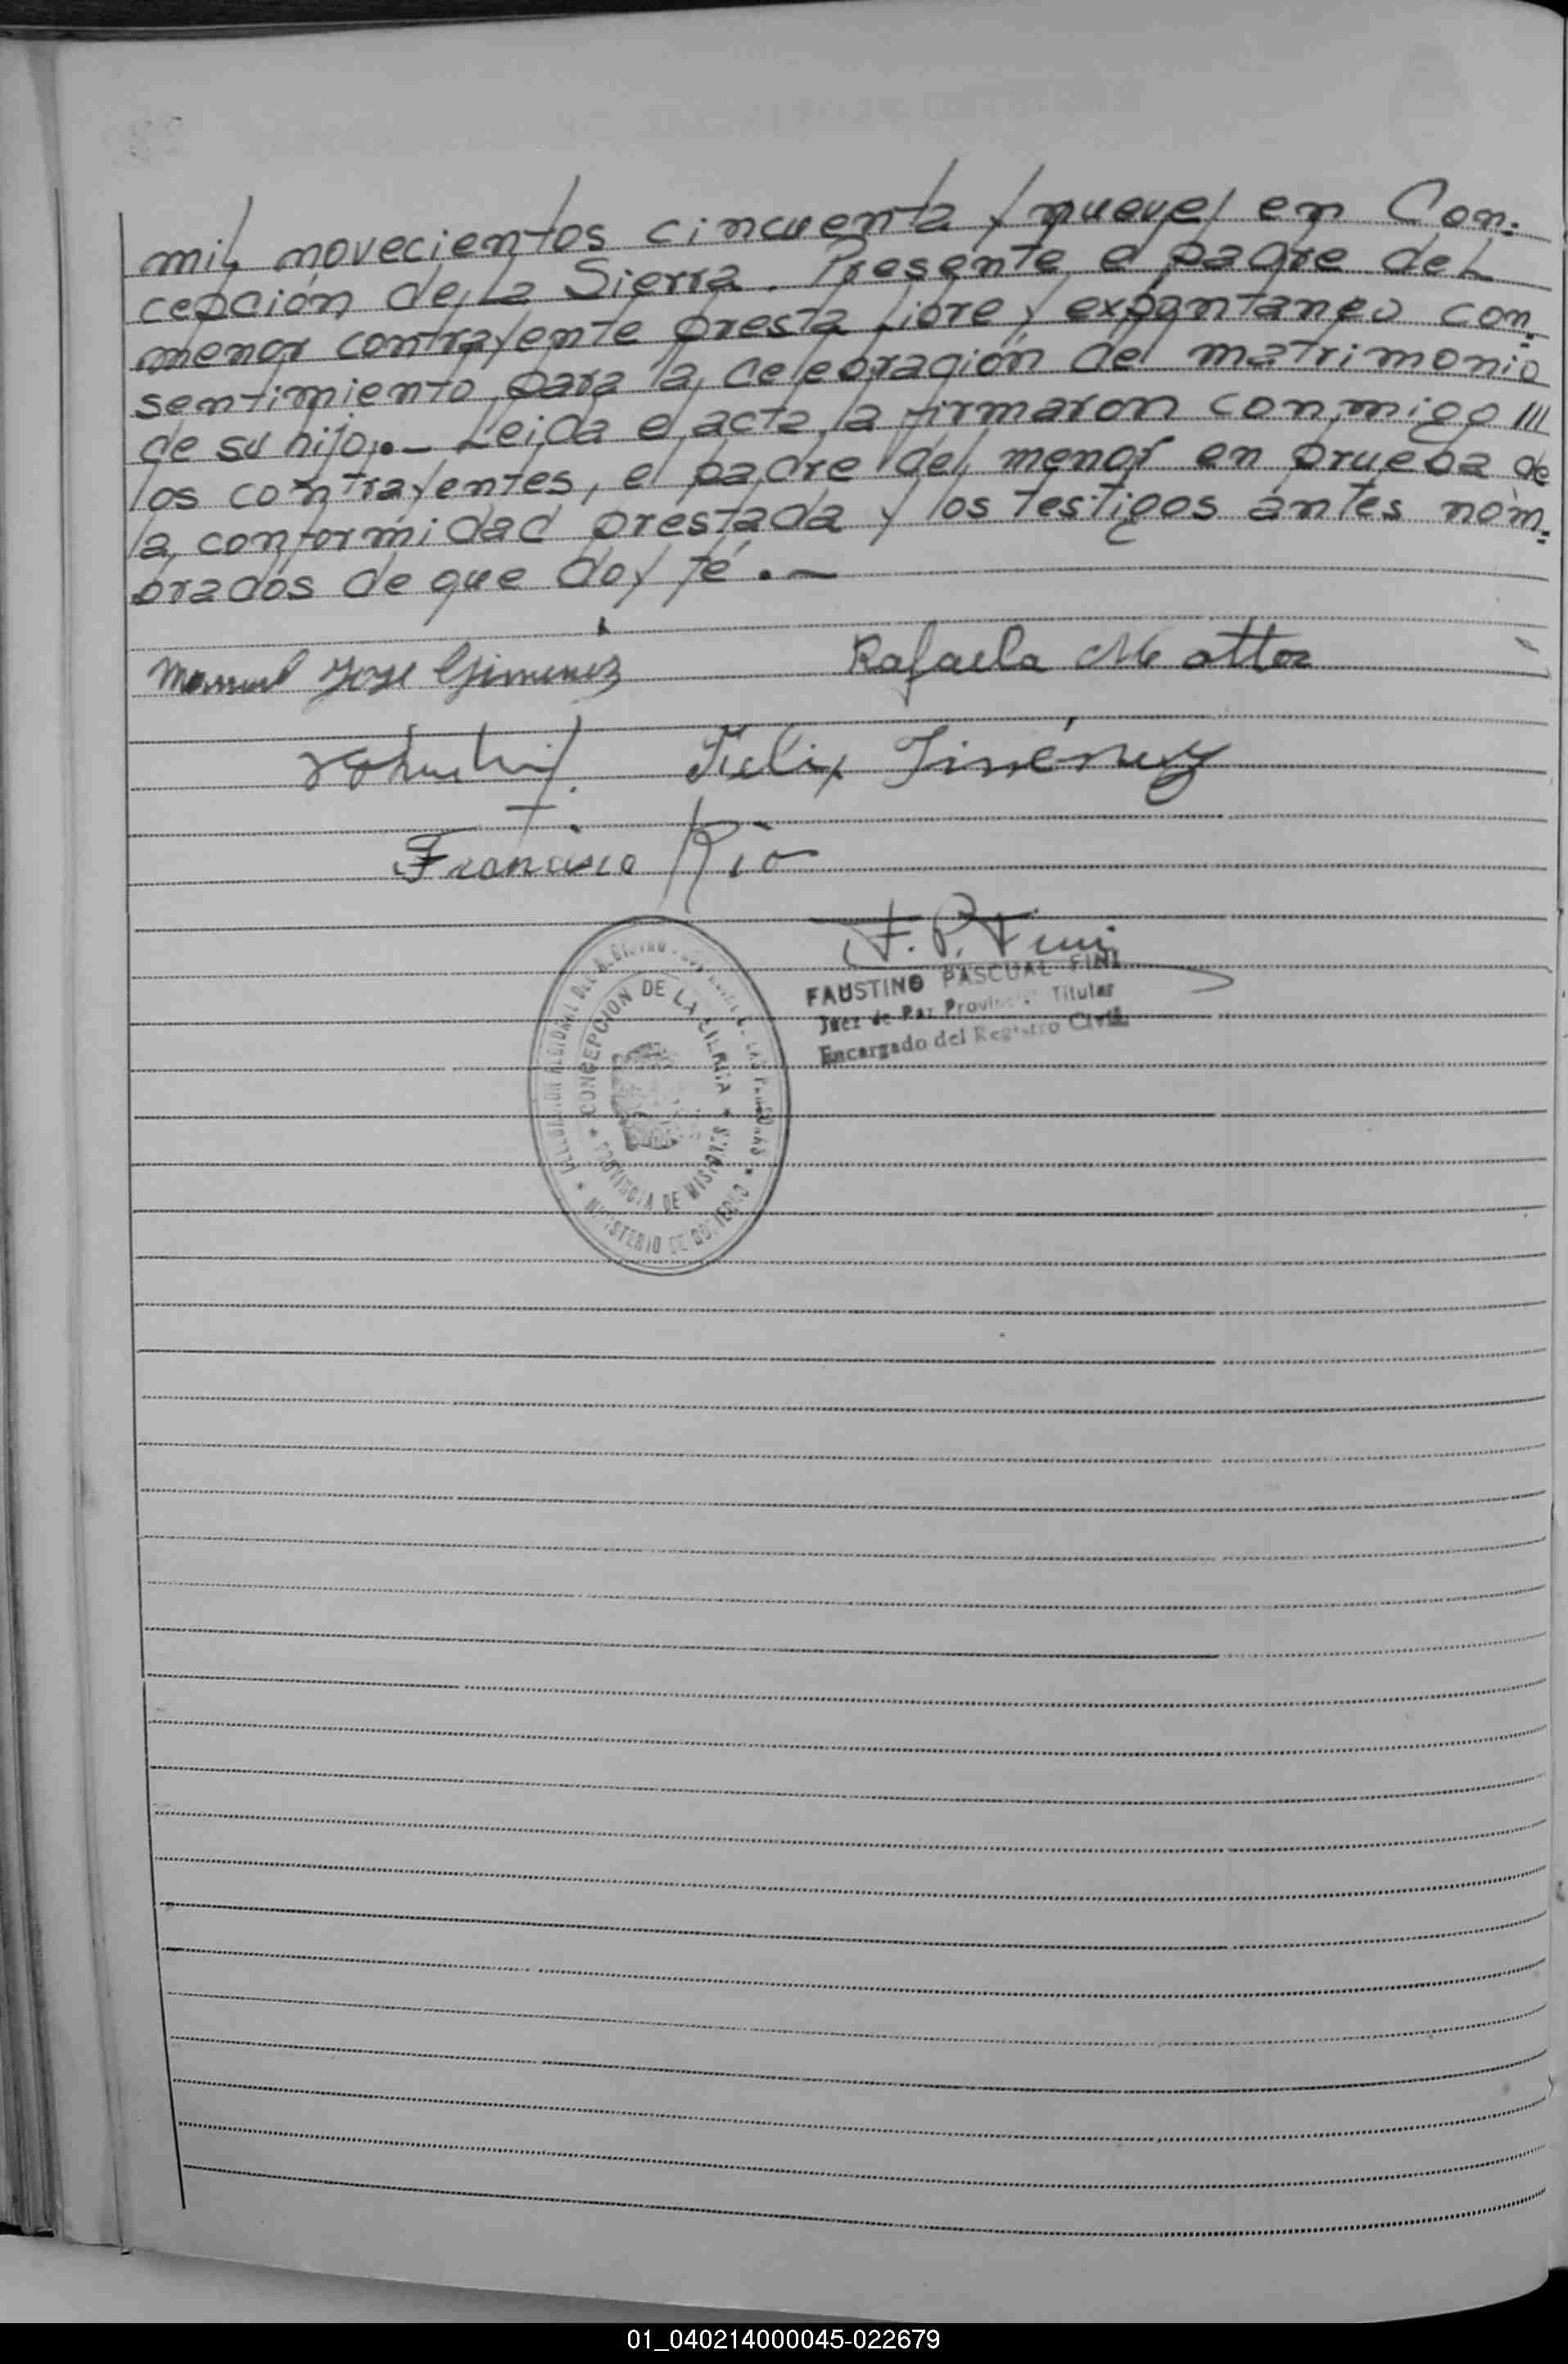 mil novecientos cincuenta y nueve, en Con-
cepción de la Sierra. Presente el padre del
menor contrayente presta libre y expontaneo con-
sentimiento para la celebración del matrimonio
de su hijo.- Leida el acta, la firmaron conmigo ///
los contrayentes, el padre del menor en prueba de
la conformidad prestada y los testigos ántes nóm-
brados de que doy fé.-
Manuel Jose Gimenez
Rafaela Mattos
Felix Jiménez
Francisco Rio
F. P. Fini
FAUSTINO PASCUAL FINI
Juez de Paz Provincial Titular
Encargado del Registro Civil
CONCEPCION DE LA SIERRA
PROVINCIA DE MISIONES
MINISTERIO DE GOBIERNO
01_040214000045-022679